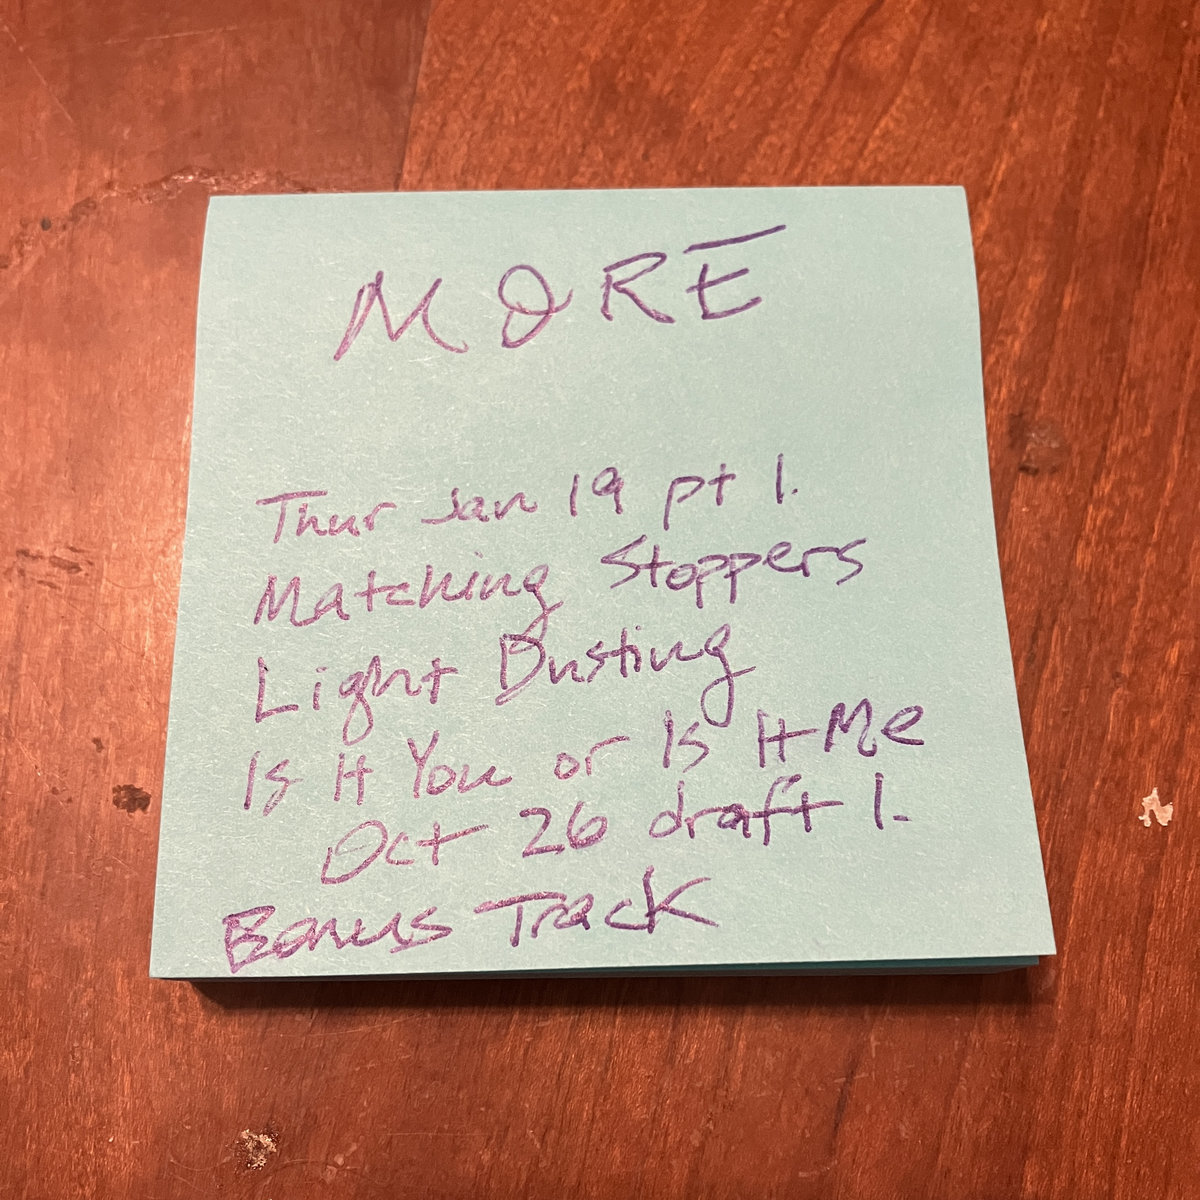 MORE
Thur Jan 19 pt 1.
Matching Stoppers
Light Dusting
Is It You or Is It Me
Oct 26 draft 1.
Bonus Track